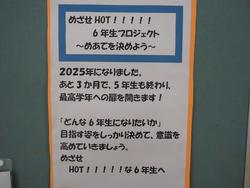 めざせ HOT!!!!!
6年生プロジェクト
~めあてを決めよう~
2025年になりました。
あと3か月で、5年生も終わり、
最高学年への扉を開きます!
「どんな6年生になりたいか」
目指す姿をしっかり決めて、意識を
高めていきましょう。
めざせ
HOT!!!!!な6年生へ